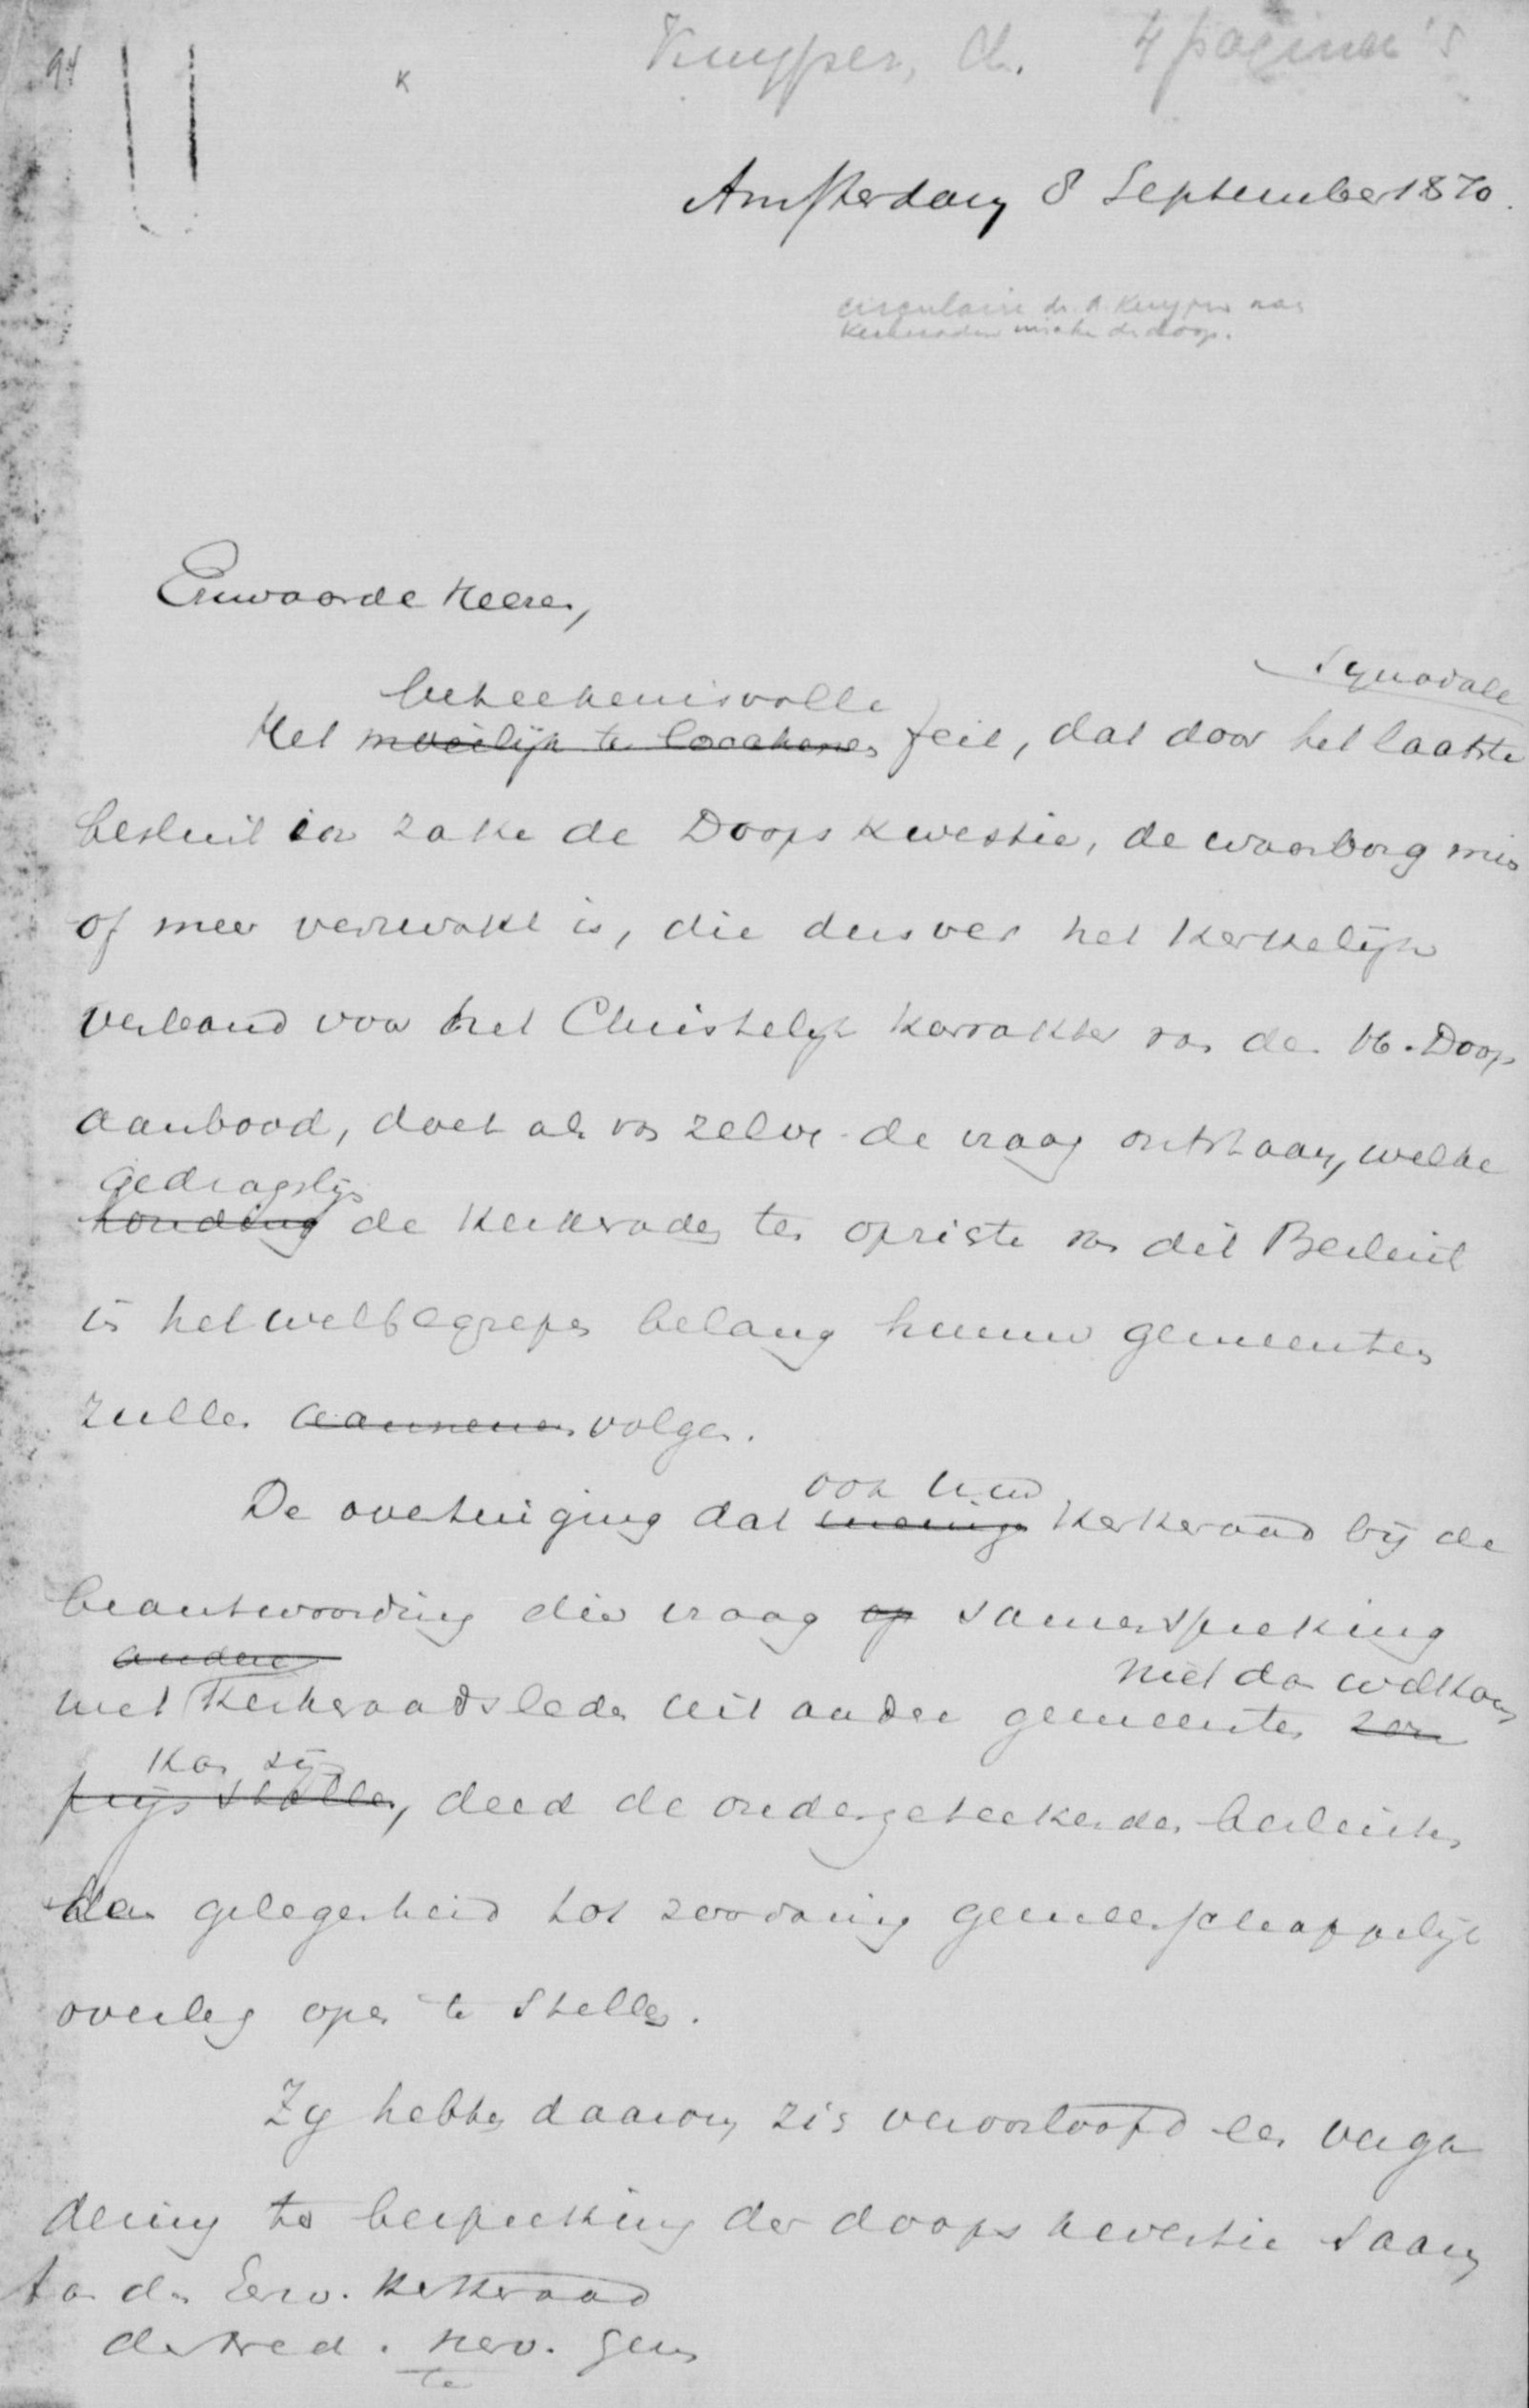 94
K
Kuyper, A. 4 pagina's
Amsterdam 8 September 1870.
circulaire dr. A. Kuyper aan
Kerkeraden inzake de doop.
Eerwaarde Heeren,
beteekenisvolle Synodale
Het moeilijk te loochenen feit, dat door het laatste
besluit in zake de Doopskwestie, de waarborg min
of meer verzwakt is, die dusver het Kerkelijk
verband voor het Christelijk karrakter van den H. Doop
aanbood, doet als van zelve de vraag ontstaan, welke
gedragslijn
houding de Kerkeraden ten opziste van dit Besluit
in het welbegrepen belang hunner gemeenten
zullen aannemen volgen.
ook Uw
De overtuiging dat menige Kerkeraad bij de
beantwoording dier vraag op samenspreking
andere niet dan welkom
met Kerkeraadsleden uit andere gemeenten zou
kan zijn
prijs stellen, deed de ondergeteekenden besluiten
den gelegenheid tot zoodanig gemeenschappelijk
overleg open te stellen.
Zij hebben daarom zich veroorloofd een verga
dering ter bespreking der doopskwestie saam
Aan den Eerw. Kerkeraad
der Ned. Herv. Gem
te